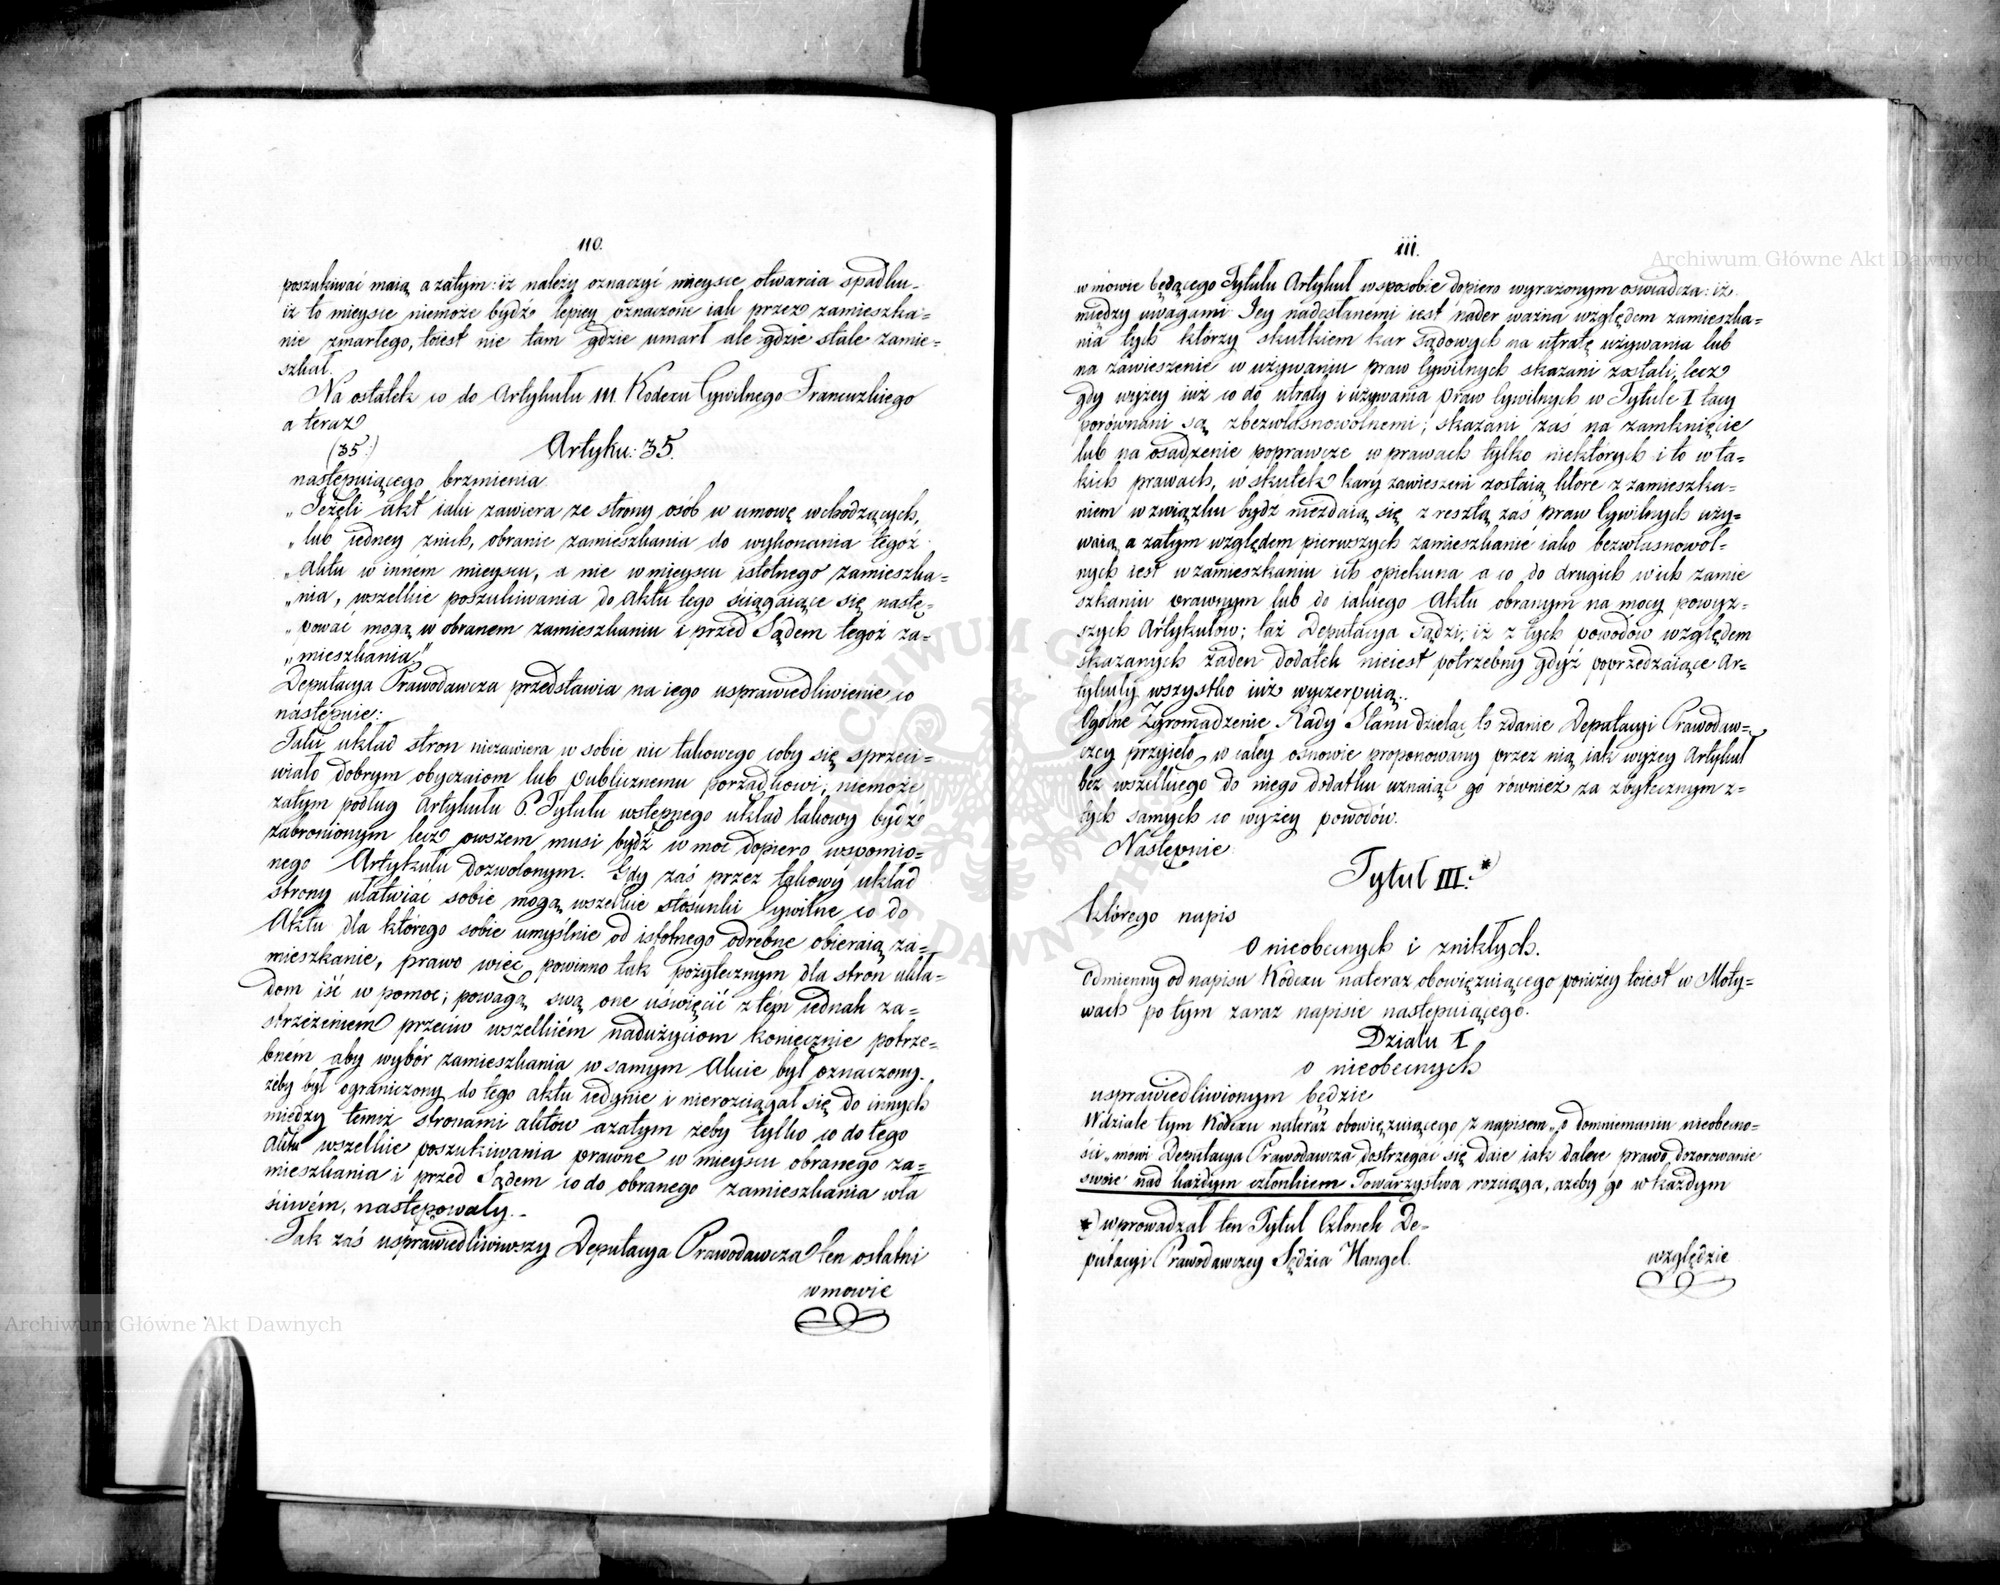 110.
poszukiwać maią a zatym: iż należy oznaczyć mieysce otwarcia spadku,
iż to mieysce niemoże bydź lepiey oznaczone iak przez zamieszka=
nie zmarłego, toiest nie tam gdzie umarł ale gdzie stale zamie=
szkał.
Na ostatek co do Artykułu 111. Kodexu Cywilnego Francuzkiego
a teraz
(35.) Artyku: 35.
następuiącego brzmienia.
„Jeżeli akt iaki zawiera ze strony osób w umowę wchodzących,
„lub iedney znich, obranie zamieszkania do wykonania tegoż
„Aktu w innem mieyscu, a nie w mieyscu istotnego zamieszka=
„nia, wszelkie poszukiwania do Aktu tego ściągaiące się nastę=
„pować mogą w obranem zamieszkaniu i przed Sądem tegoż za=
„mieszkania"
Deputacya Prawodawcza przedstawia na iego usprawiedliwienie co
następuie:
Taki układ stron niezawiera w sobie nic takowego coby się sprzeci=
wiało dobrym obyczaiom lub publicznemu porządkowi; niemoże
zatym podług Artykułu 6. Tytułu wstępnego układ takowy bydź
zabronionym lecz owszem musi bydź w moc dopiero wspomio=
nego Artykułu dozwolonym. Gdy zaś przez takowy układ
strony ułatwiać sobie mogą wszelkie stosunki Cywilne co do
Aktu dla którego sobie umyślnie od istotnego odrębne obieraią za=
mieszkanie, prawo więc powinno tak pożytecznym dla stron ukła=
dom iść w pomoc; powagą swą one uświęcić z tém iednak za=
strzeżeniem przeciw wszelkiém nadużyciom koniecznie potrze=
bném aby wybór zamieszkania w samym Akcie był oznaczony.
żeby był ograniczony do tego aktu iedynie i nierozciągał się do innych
między temiż stronami aktów azatym żeby tylko co do tego
Aktu wszelkie poszukiwania prawne w mieyscu obranego za=
mieszkania i przed Sądem co do obranego zamieszkania wła
ściwém, następowały.
Tak zaś usprawiedliwiwszy Deputacya Prawodawcza ten ostatni
wmowie
111.
w mowie będącego Tytułu Artykuł wsposobie dopiero wyrażonym oświadcza: iż
między uwagami Jey nadesłanemi iest nader ważna względem zamieszka=
nia tych którzy skutkiem kar sądowych na utratę używania lub
na zawieszenie w używaniu praw Cywilnych skazani zostali, lecz
gdy wyżey iuż co do utraty i używania praw Cywilnych w Tytule I tacy
porównani są zbezwłasnowolnemi; skazani zaś na zamknięcie
lub na osadzenie poprawcze w prawach tylko niektórych i to w ta=
kich prawach, w skutek kary zawieszeni zostaią które z zamieszka=
niem w związku bydź niezdaią się z resztą zaś praw Cywilnych uży=
waią, a zatym względem pierwszych zamieszkanie iako bezwłasnowol=
nych iest w zamieszkaniu ich opiekuna a co do drugich w ich zamie
szkaniu prawnym lub do iakiego Aktu obranym na mocy powyż=
szych Artykułów; taż Deputacya sądzi, iż z tych powodów względem
skazanych żaden dodatek nieiest potrzebny gdyż poprzedzaiące Ar=
tykuły wszystko iuż wyczerpuią.
Ogólne Zgromadzenie Rady Stanu dzieląc to zdanie Deputacyi Prawodaw=
czey przyięło w całey osnowie proponowany przez nią iak wyżey Artykuł
bez wszelkiego do niego dodatku uznaiąc go również za zbytecznym z=
tych samych co wyżey powodów.
Następnie
Tytuł III.*)
którego napis
O nieobecnych i znikłych.
odmienny od napisu Kodexu nateraz obowięzuiącego poniżey toiest w Moty=
wach po tym zaraz napisie następuiącego.
Działu I
o nieobecnych
usprawiedliwionym będzie
W dziale tym Kodexu nateraz obowięzuiącego z napisem „o domniemaniu nieobecno=
ści„ mówi Deputacya Prawodawcza dostrzegać się daie iak dalece prawo dozorowanie
swoie nad każdym członkiem Towarzystwa rozciąga, ażeby go w każdym
*) wprowadzał ten Tytuł Członek De=
putacyi Prawodawczey Sędzia Hangel.
względzie
Archiwum Główne Akt Dawnych
Archiwum Główne Akt Dawnych